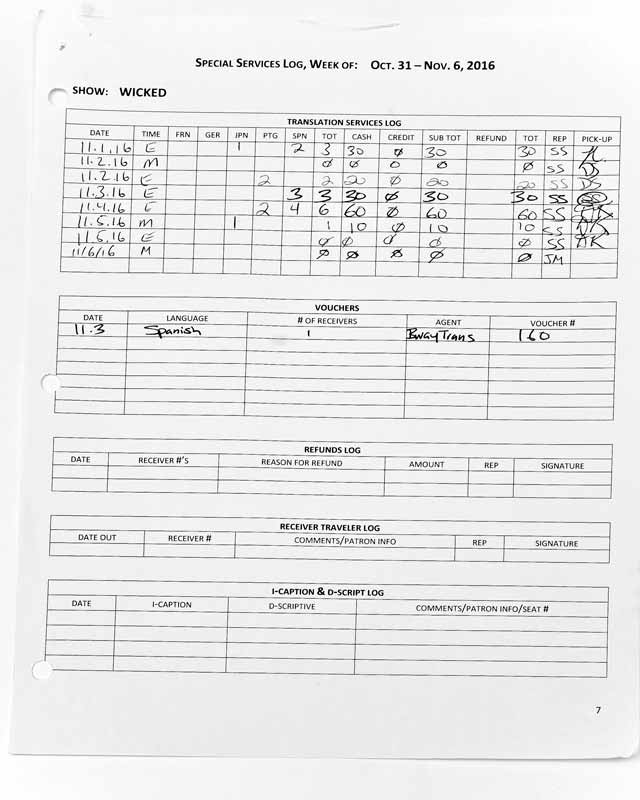 SPECIAL SERVICES LOG, WEEK OF: OCT. 31 – NOV. 6, 2016
SHOW: WICKED
TRANSLATION SERVICES LOG
DATE TIME FRN GER JPN PTG SPN TOT CASH CREDIT SUB TOT REFUND TOT REP PICK-UP
11.1.16 E 1 2 3 30 Ø 30 30 SS
11.2.16 M Ø Ø 0 Ø Ø SS DS
11.2.16 E 2 2 20 Ø 20 20 SS DS
11.3.16 E 3 3 30 Ø 30 30 SS
11.4.16 E 2 4 6 60 Ø 60 60 SS
11.5.16 M 1 1 10 Ø 10 10 SS AK
11.5.16 E Ø Ø Ø Ø Ø SS AK
11/6/16 M Ø Ø Ø Ø Ø JM
VOUCHERS
DATE LANGUAGE # OF RECEIVERS AGENT VOUCHER #
11.3 Spanish 1 BwayTrans 160
REFUNDS LOG
DATE RECEIVER #'S REASON FOR REFUND AMOUNT REP SIGNATURE
RECEIVER TRAVELER LOG
DATE OUT RECEIVER # COMMENTS/PATRON INFO REP SIGNATURE
I-CAPTION & D-SCRIPT LOG
DATE I-CAPTION D-SCRIPTIVE COMMENTS/PATRON INFO/SEAT #
7